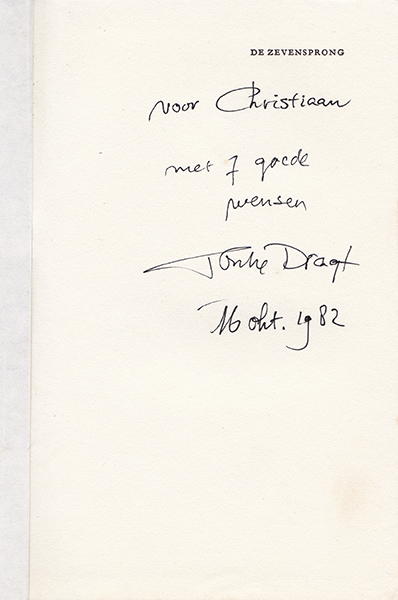 DE ZEVENSPRONG
voor Christiaan
met 7 goede
wensen
Tonke Dragt
16 okt. 1982